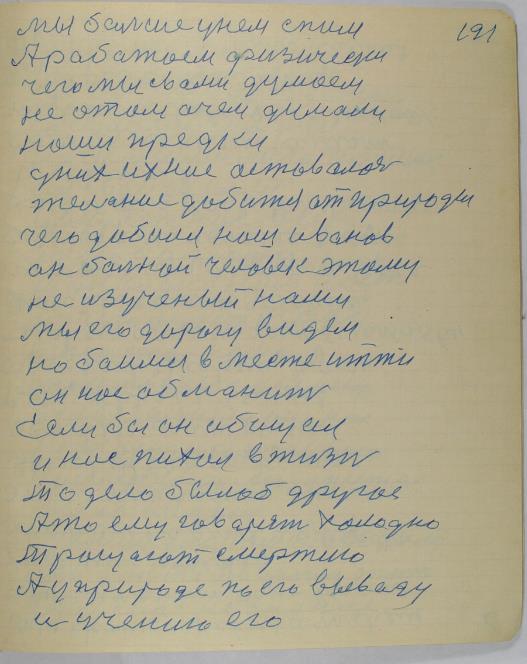 191
мы болше унем спим
А рабатоем физически
чего мы свами думоем
не отом очем думали
наши предки
уних ихное оставалос
желание добится от природы
чего добился наш иванов
он балной человек этому
не изученый нами
мы его дорогу видем
но баимся в месте итти
он нас обманит
Если бы он обищал
и нас пихал в жизн
То дело былоб другое
А то ему говарят холодно
Трощают смертию
А у природе по его выводу
и учению его